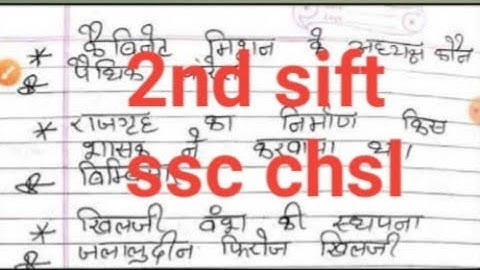 * कैबिनेट मिशन के अध्यक्ष कौन
& पैथिक
2nd sift
* राजगृह का निर्माण किस
शासक ने करवाया था।
ssc chsl
& बिम्बिसार
* खिलजी वंश की स्थपना
& जलालुदीन फिरोज खिलजी